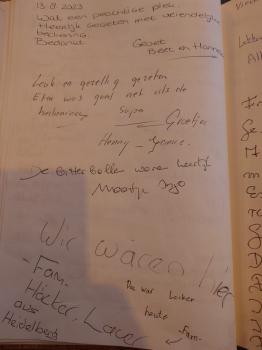 13-8-2023
Wat een prachtige plek.
Heerlijk gegeten met vriendelijke
bediening.
Bedankt.
Groet
Beet en Hannie
Leuk en gezellig gezeten
Eten was goed net als de
bediening super
Groetjes
Henny
De Bitterballen waren heerlijk
Wir waren hier
-Fam.
Höcker,
aus
Heidelberg
heute
Fam.